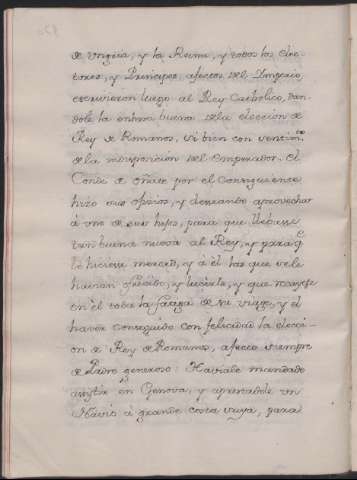 de Ungria, y la Reina, y todos los Elec-
tores, y Principes afectos del Imperio,
escrivieron luego al Rey Catholico, dan-
dole la enhora buena de la eleccion de
Rey de Romanos, si bien con sentim.to
de la indisposicion del Emperador. El
Conde de Oñate por el consiguiente
hizo sus oficios, y deseando aprovechar
à uno de sus hijos, para que llebasse
tan buena nueva al Rey, y para q.e
le hiciese merced, y à èl las que se le
havian ofrecido, y
en èl toda la fatiga de su viage, y el
haver conseguido con felicidad la elecci-
on de Rey de Romanos, afecto siempre
de Padre generoso: Haviale mandado
assistir en Genova, y aprestadole un
Navio à grande costa suya, para